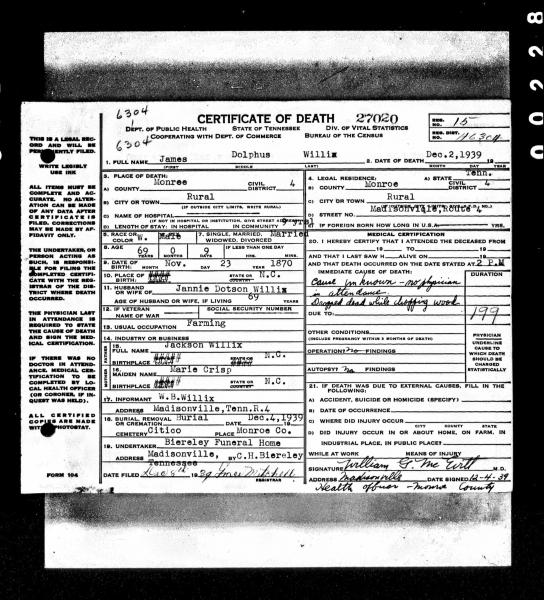 00228
6304
6304
CERTIFICATE OF DEATH 27020
DEPT. OF PUBLIC HEALTH STATE OF TENNESSEE DIV. OF VITAL STATISTICS
COOPERATING WITH DEPT. OF COMMERCE BUREAU OF THE CENSUS
REG. NO. 15
REG. DIST. NO.
THIS IS A LEGAL RECORD AND WILL BE PERMANENTLY FILED.
WRITE LEGIBLY
USE INK
ALL ITEMS MUST BE COMPLETE AND ACCURATE. NO ALTERATION CAN BE MADE OF ANY DATA AFTER CERTIFICATE IS FILED. CORRECTIONS MAY BE MADE BY AFFIDAVIT ONLY.
THE UNDERTAKER, OR PERSON ACTING AS SUCH, IS RESPONSIBLE FOR FILING THE COMPLETED CERTIFICATE WITH THE REGISTRAR OF THE DISTRICT WHERE DEATH OCCURRED.
THE PHYSICIAN LAST IN ATTENDANCE IS REQUIRED TO STATE THE CAUSE OF DEATH AND SIGN THE MEDICAL CERTIFICATION.
IF THERE WAS NO DOCTOR IN ATTENDANCE, MEDICAL CERTIFICATION TO BE COMPLETED BY LOCAL HEALTH OFFICER (OR CORONER, IF INQUEST WAS HELD).
ALL CERTIFIED COPIES ARE MADE WITH PHOTOSTAT.
FORM 104
1. FULL NAME James Dolphus Willix
(FIRST) (MIDDLE) (LAST)
2. DATE OF DEATH Dec.2,1939 19
MONTH DAY YEAR
3. PLACE OF DEATH:
A) COUNTY Monroe CIVIL DISTRICT 4
B) CITY OR TOWN Rural
(IF OUTSIDE CITY LIMITS, WRITE RURAL)
C) NAME OF HOSPITAL
(IF NOT IN HOSPITAL OR INSTITUTION, GIVE STREET
D) LENGTH OF STAY: IN HOSPITAL IN COMMUNITY
4. LEGAL RESIDENCE: A) STATE Tenn.
B) COUNTY Monroe CIVIL DISTRICT 4
C) CITY OR TOWN Rural
D) STREET NO. Madisonville,Route 4
E) IF FOREIGN BORN HOW LONG IN U.S.A. YRS.
5. RACE OR COLOR W. Male
7. SINGLE, MARRIED, WIDOWED, DIVORCED Married
8. AGE 69 0 9 IF LESS THAN ONE DAY
YEARS MONTHS DAYS HRS. MINS.
9. DATE OF BIRTH: Nov. 23 1870
MONTH DAY YEAR
10. PLACE OF BIRTH STATE OR COUNTRY N.C.
11. HUSBAND OR WIFE OF Jannie Dotson Willix
AGE OF HUSBAND OR WIFE, IF LIVING 69 YEARS
12. IF VETERAN NAME OF WAR SOCIAL SECURITY NUMBER
13. USUAL OCCUPATION Farming
14. INDUSTRY OR BUSINESS
FATHER
15. FULL NAME Jackson Willix
BIRTHPLACE STATE OR COUNTRY N.C.
MOTHER
16. MAIDEN NAME Marie Crisp
BIRTHPLACE STATE OR COUNTRY N.C.
17. INFORMANT W.B.Willix
ADDRESS Madisonville,Tenn.R.4
18. BURIAL, REMOVAL OR CREMATION Burial DATE Dec.4,1939
CEMETERY Citico PLACE Monroe Co.
19. UNDERTAKER Biereley Funeral Home
ADDRESS Madisonville, Tennessee BY C.H.Biereley
DATE FILED Dec 8th 1939
REGISTRAR
MEDICAL CERTIFICATION
20. I HEREBY CERTIFY THAT I ATTENDED THE DECEASED FROM
19 TO 19
AND THAT I LAST SAW ALIVE ON 19
AND THAT DEATH OCCURRED ON THE DATE STATED AT 2 P.M
IMMEDIATE CAUSE OF DEATH: DURATION
Cause unknown - no physician
in attendance.
Dropped dead while chopping wood
DUE TO: 199
OTHER CONDITIONS
(INCLUDE PREGNANCY WITHIN 3 MONTHS OF DEATH)
OPERATION no FINDINGS
AUTOPSY no FINDINGS
PHYSICIAN
UNDERLINE CAUSE TO WHICH DEATH SHOULD BE CHARGED STATISTICALLY
21. IF DEATH WAS DUE TO EXTERNAL CAUSES, FILL IN THE FOLLOWING:
A) ACCIDENT, SUICIDE OR HOMICIDE (SPECIFY)
B) DATE OF OCCURRENCE
C) WHERE DID INJURY OCCUR
CITY COUNTY STATE
D) DID INJURY OCCUR IN OR ABOUT HOME, ON FARM, IN INDUSTRIAL PLACE, IN PUBLIC PLACE?
WHILE AT WORK MEANS OF INJURY
SIGNATURE William G. M.D.
ADDRESS Madisonville DATE SIGNED 12-4-39
Health officer - Monroe County